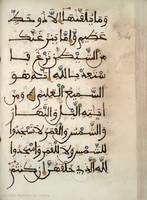 وما يلقيها إلا ذو حظ
عظيم وإما ينزغنك
من الشيطن نزغ فا
ستعذ بالله إنه هو
السميع العليم ومن
ءايته اليل والنهار
والشمس والقمر لا تسجدوا
للشمس ولا للقمر واسجدوا
لله الذي خلقهن إن كنتم